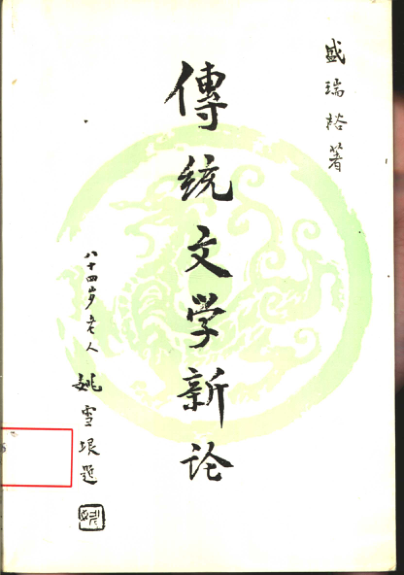 盛瑞裕著
傳统文学新论
八十四岁老人
姚雪垠题